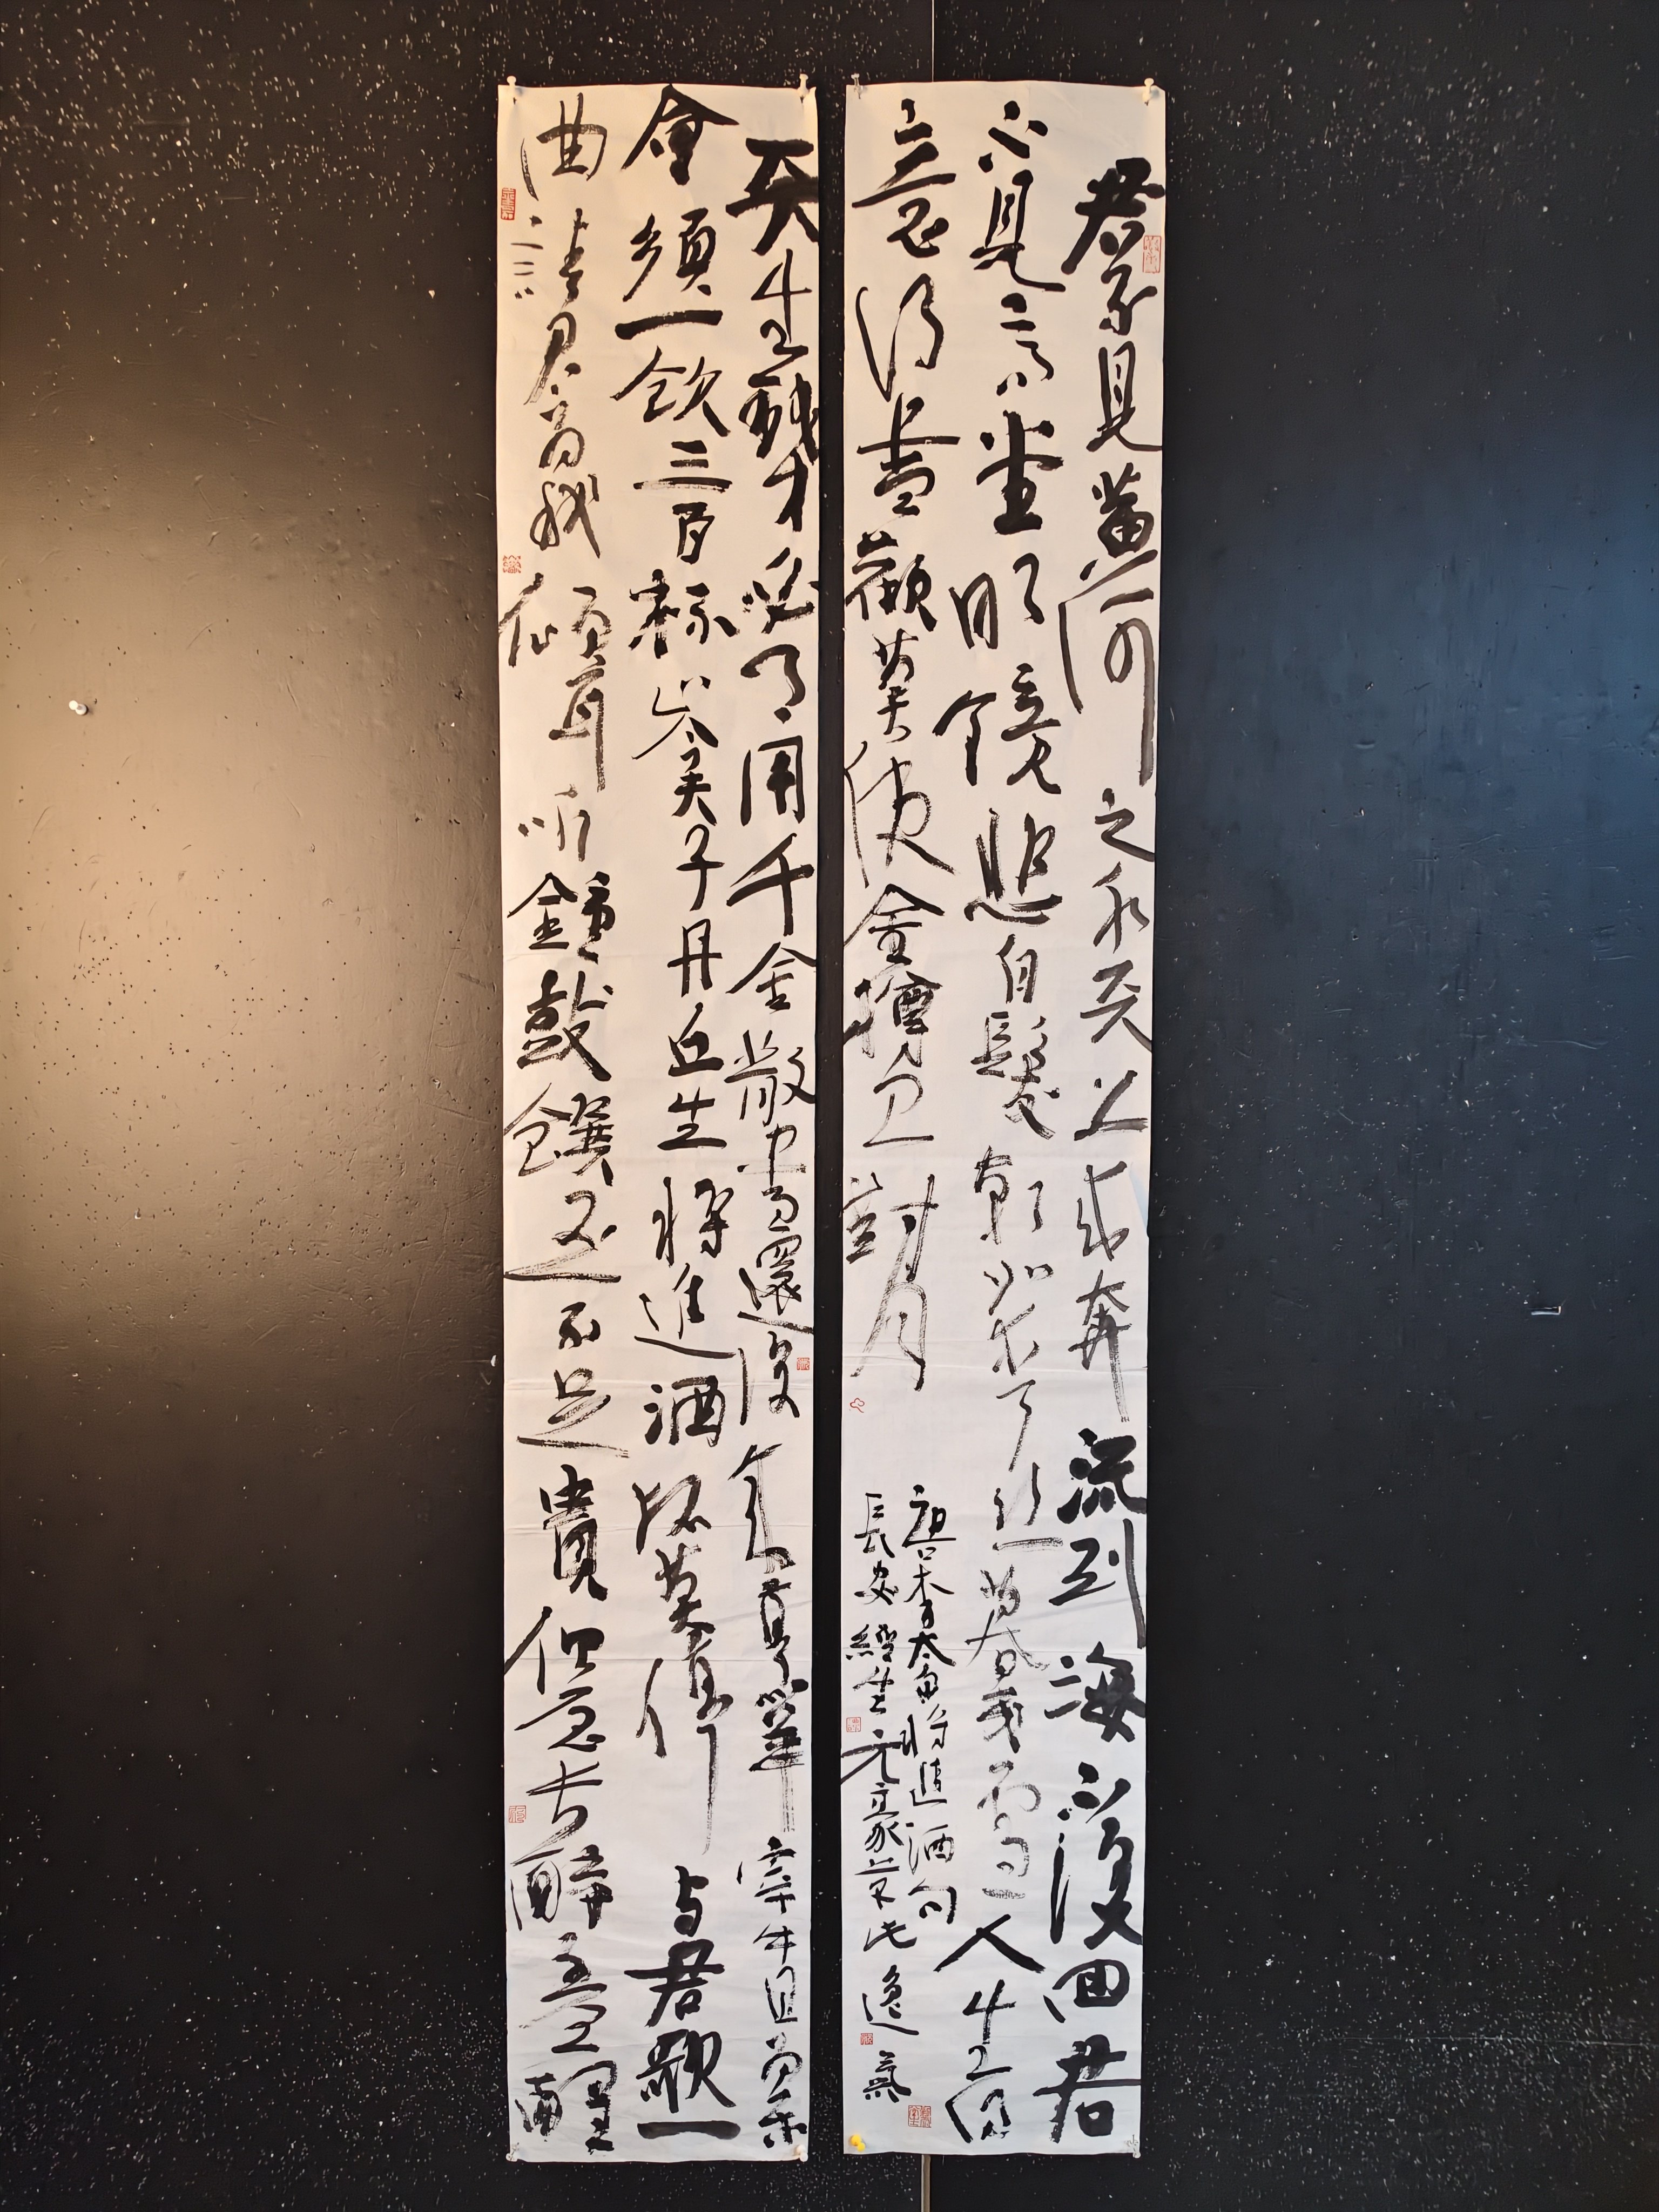 君不見黃河之水天上來奔流到海不復回君
不見高堂明鏡悲白髮朝如青絲暮成雪人生得
意須盡歡莫使金樽空對月
唐李太白將進酒句
長安經生元豪 逸氣
天生我才必有用千金散盡還復來烹羊宰牛且為樂
會須一飲三百杯岑夫子丹丘生將進酒杯莫停与君歌一
曲請君為我傾耳听鐘鼓饌玉不足貴但愿長醉不愿醒